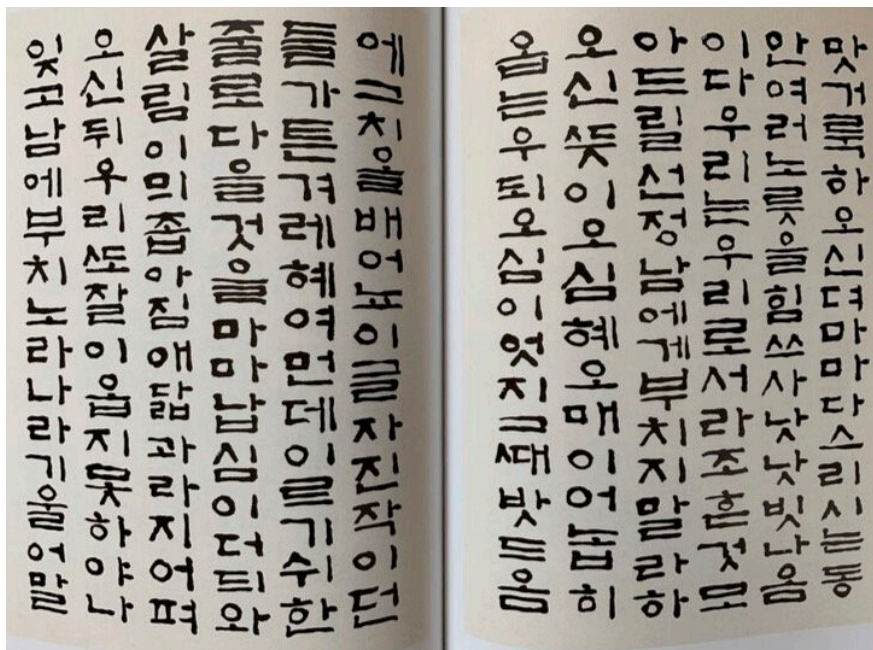 맛거룩하오신뎌마마다스리시는동
안여러노릇을힘쓰사낫낫빗나옴
이다우리는우리로서라조흔것모
아드릴선정남에게부치지말라하
오신ᄯᅳᆺ이오심혜오매이어놉히
옵는우되오심이엇지그ᄯᅢ밧드옴
에그치올배어뇨이글자진작이던
들가튼겨레혜여먼데이르기쉬한
줄로다을것을마마납심이더듸와
살림이믜좁아짐애닯과라지어펴
오신뒤우리ᄯᅩ잘이옵지못하야나
잊고남에부치노라나라기울어말